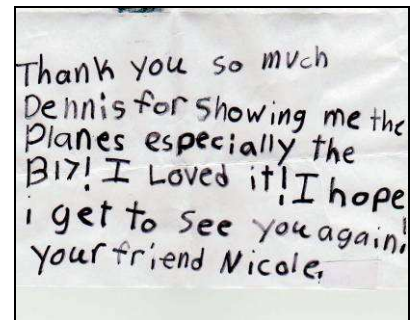 Thank you so much
Dennis for showing me the
Planes especially the
B17! I Loved it! I hope
i get to see you again!
your friend Nicole.